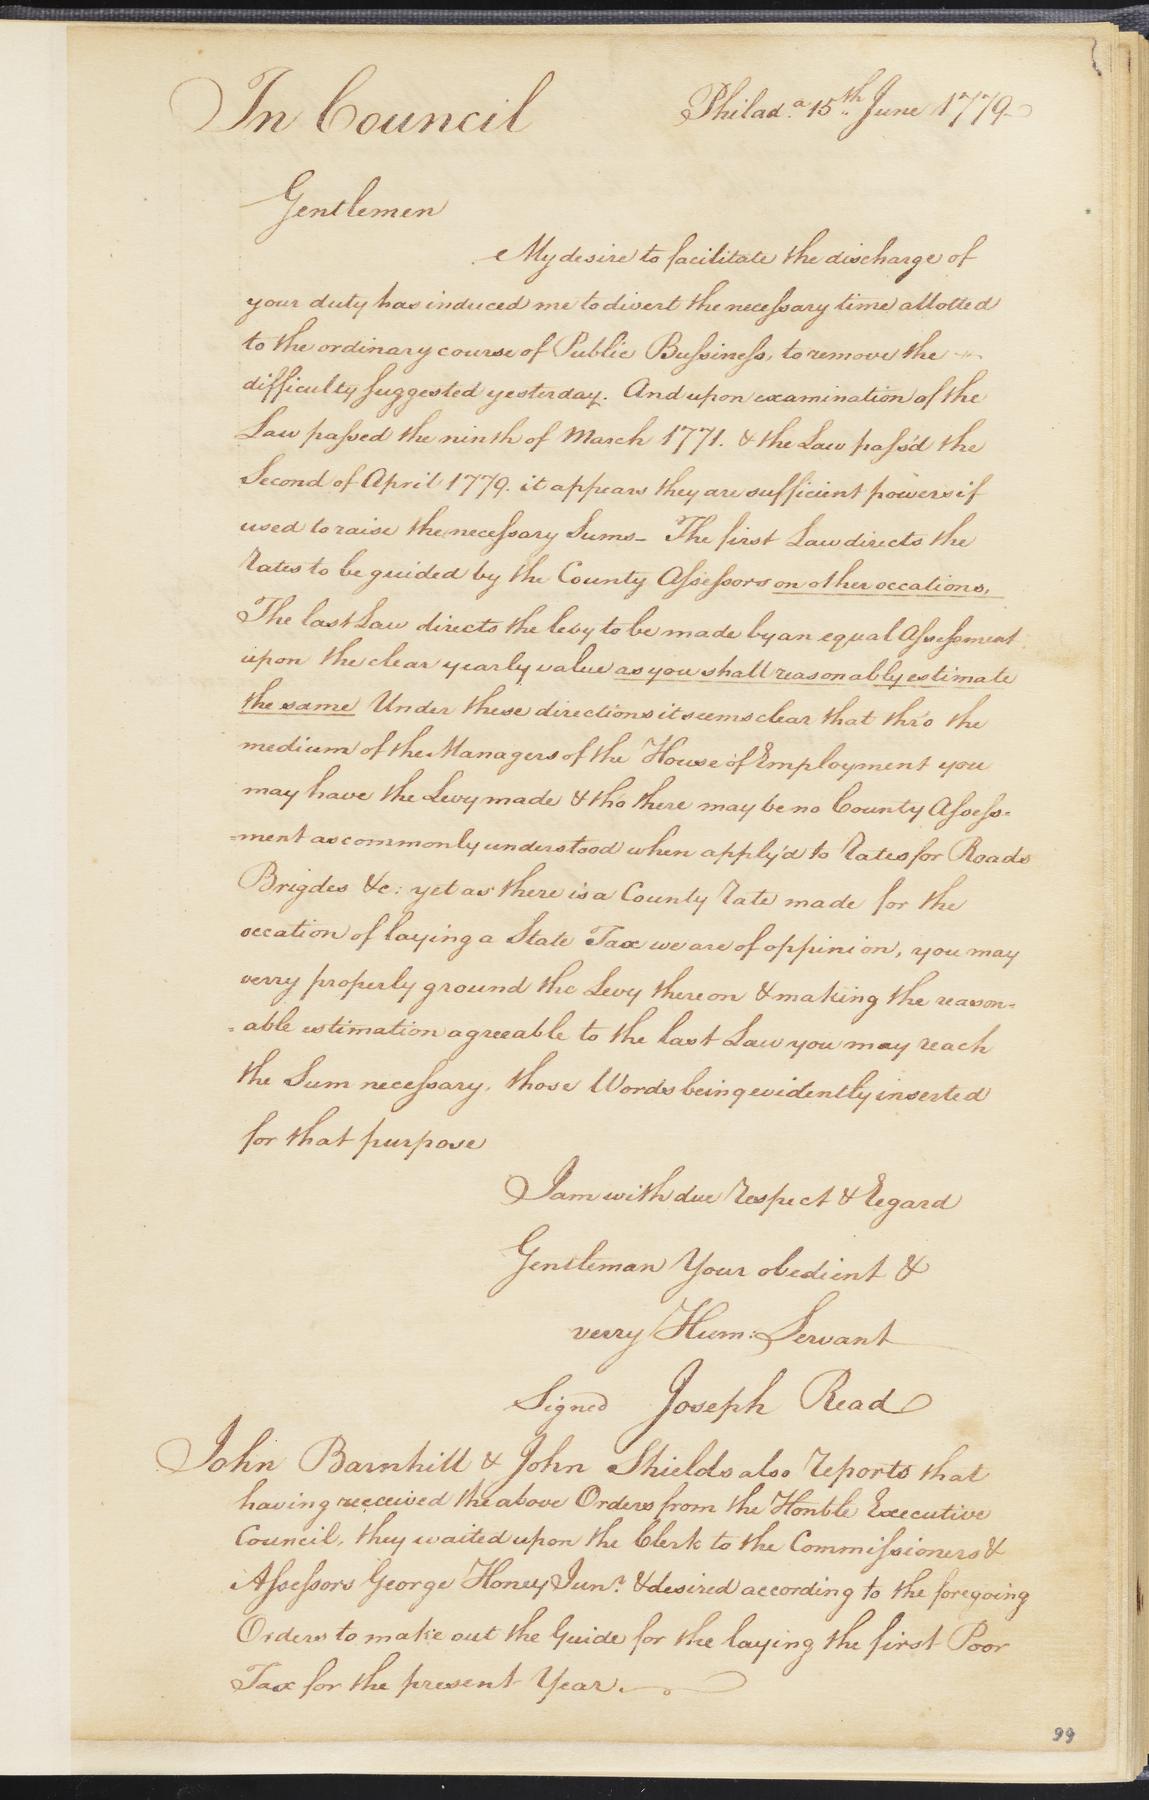 In Council Philad.a 15th June 1779
Gentlemen
My desire to facilitate the discharge of
your duty has induced me to divert the necessary time allotted
to the ordinary course of Public Bussiness, to remove the
difficulty suggested yesterday. And upon examination of the
Law passed the ninth of March 1771. & the Law pass'd the
Second of April 1779. it appears they are sufficient powers if
used to raise the necessary Sums_ The first Law directs the
Rates to be guided by the County Assessors on other occations,
The last Law directs the levy to be made by an equal Assessment
upon the clear yearly value as you shall reasonably estimate
the same Under these directions it seems clear that thro the
medium of the Managers of the House of Employment you
may have the Levy made & tho there may be no County Assess-
=ment as commonly understood when apply'd to Rates for Roads
Brigdes &c: yet as there is a County Rate made for the
occation of laying a State Tax we are of oppinion, you may
verry properly ground the Levy thereon & making the reason=
=able estimation agreeable to the last Law you may reach
the Sum necessary, those Words being evidently inserted
for that purpose
I am with due Respect & Regard
Gentleman Your obedient &
verry Hum: Servant
Signed Joseph Read
John Barnhill & John Shields also Reports that
having received the above Orders from the Honble Executive
Council, they waited upon the Clerk to the Commissioners &
Assessors George Honey Junr. & desired according to the foregoing
Orders to make out the Guide for the laying the first Poor
Tax for the present Year.
99